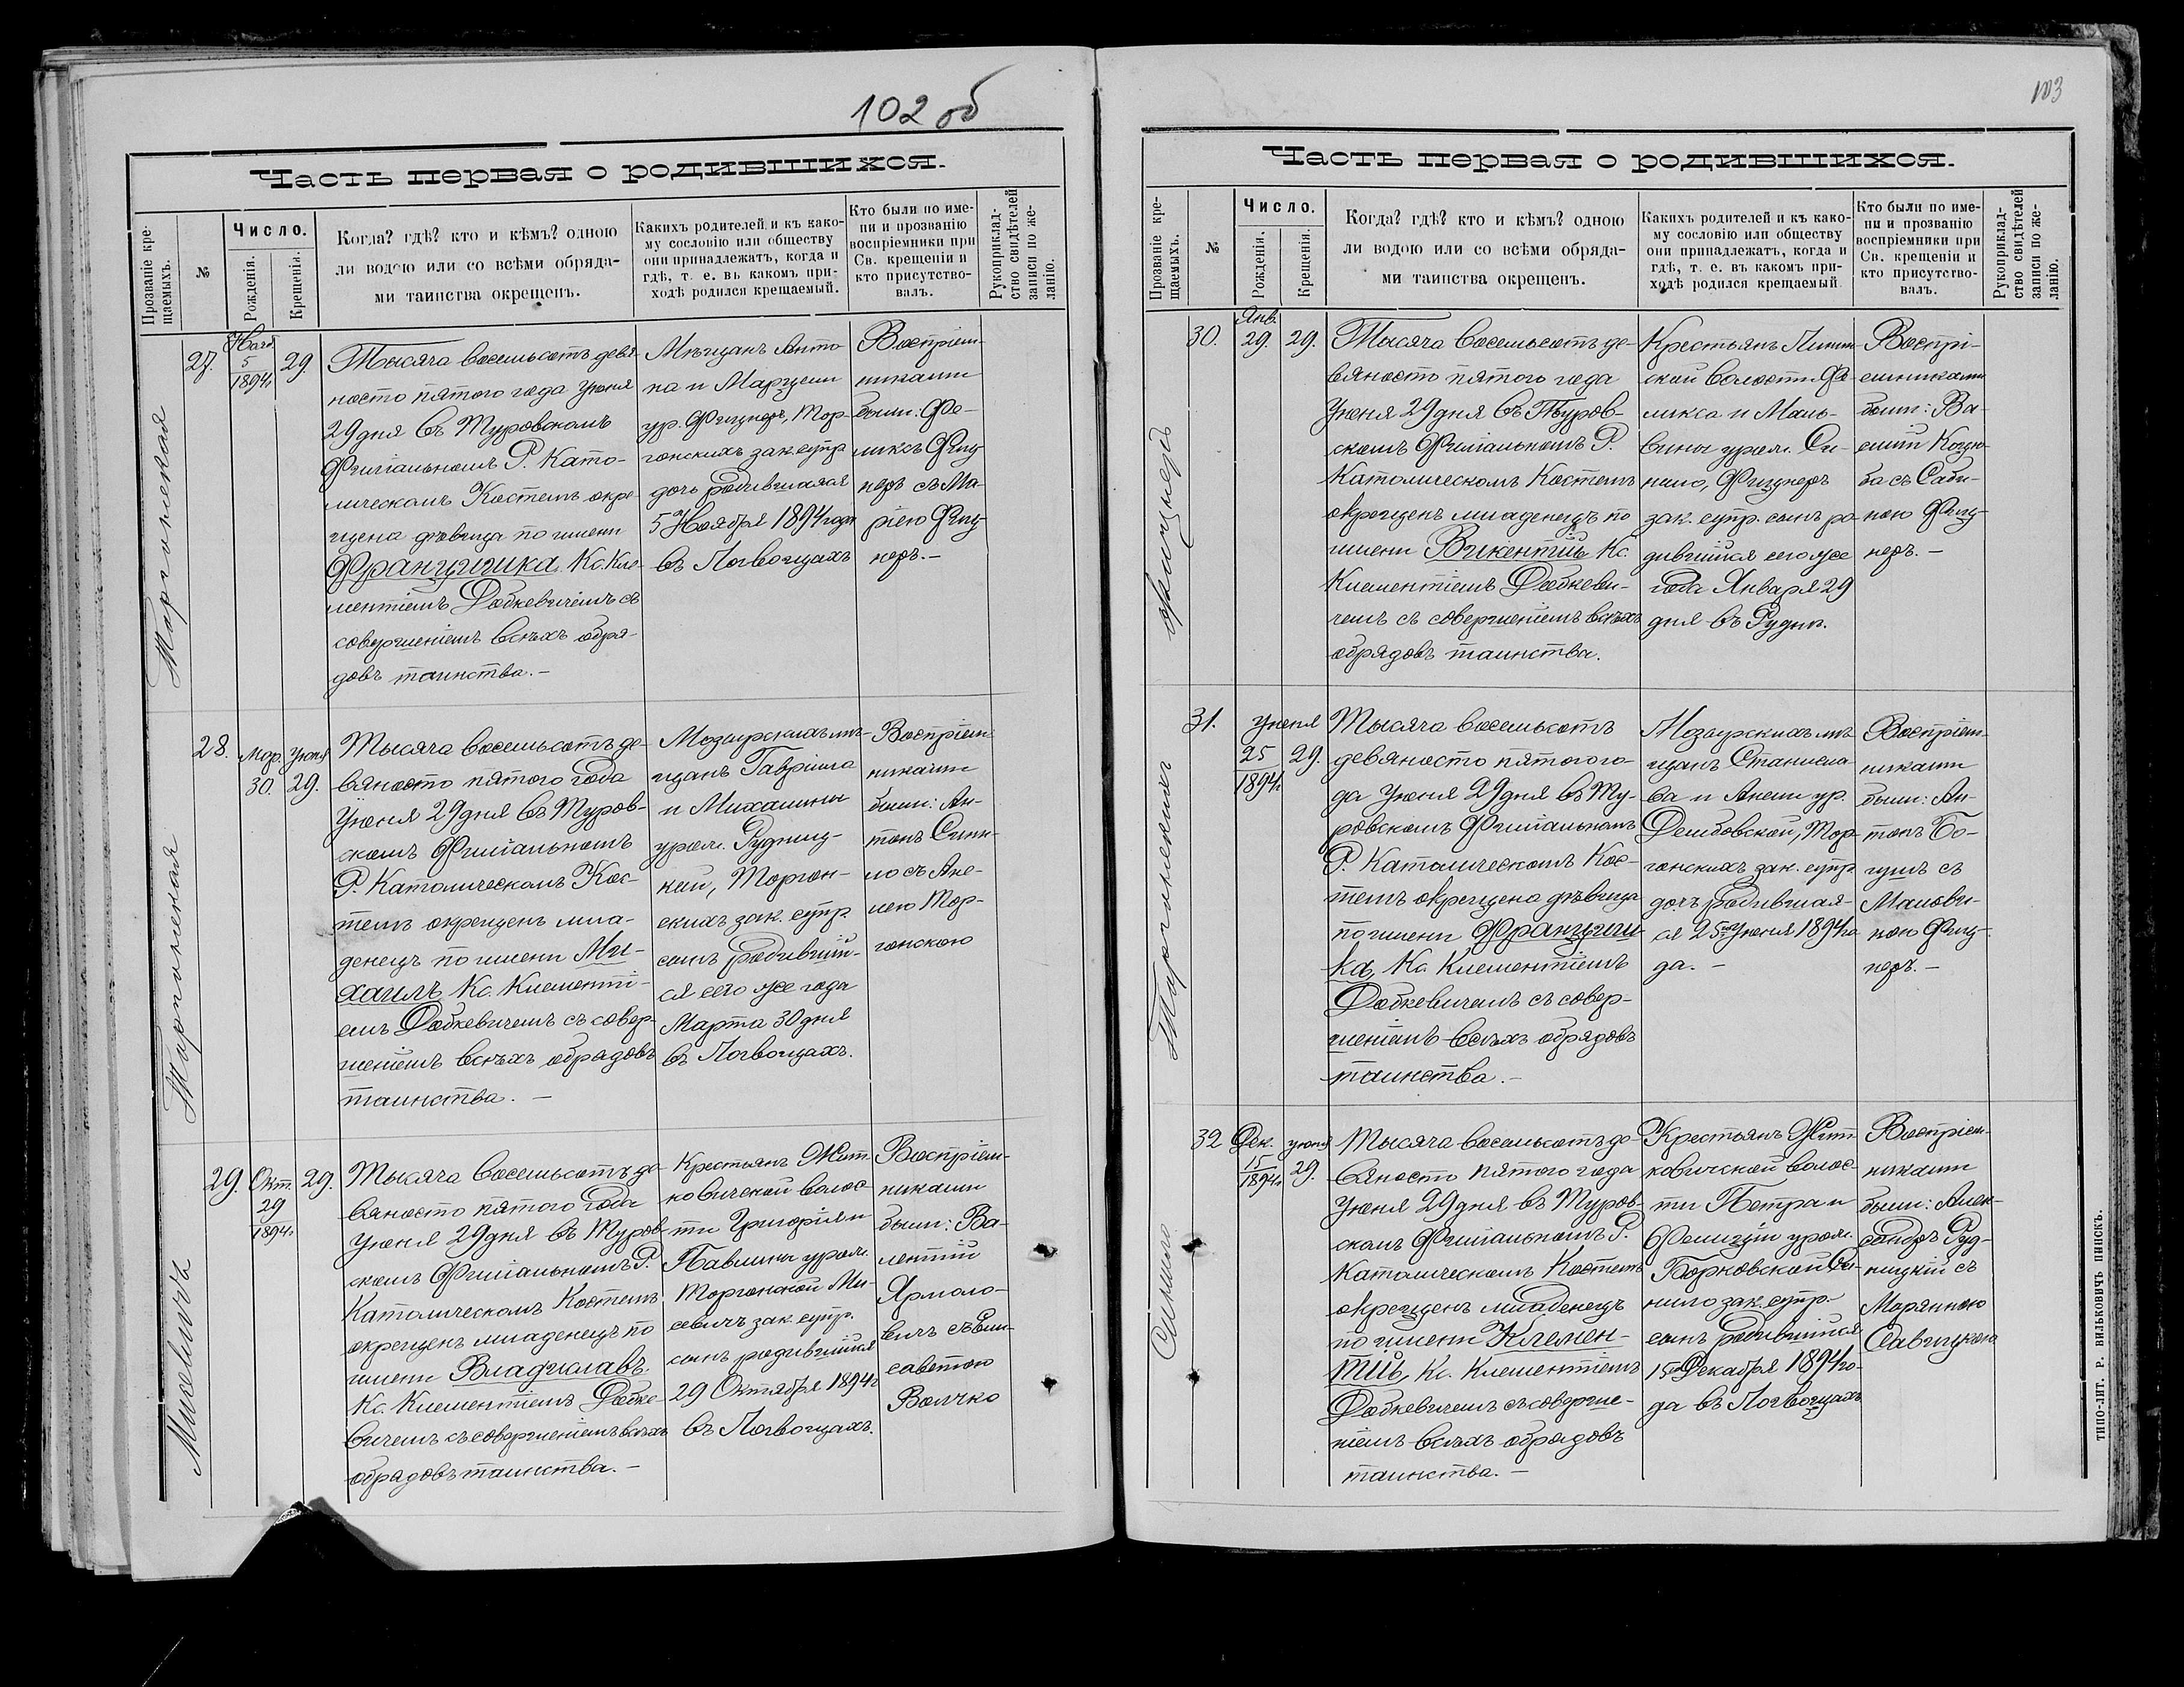 102 об
Часть первая о родившихся.
Прозваніе кре-
щаемыхъ.
№
Число.
Рожденія.
Крещенія.
Когда? гдѣ? кто и кѣмъ? одною
ли водою или со всѣми обряда-
ми таинства окрещенъ.
Какихъ родителей и къ како-
му сословію или обществу
они принадлежатъ, когда и
гдѣ, т. е. въ какомъ при-
ходѣ родился крещаемый.
Кто были по име-
ни и прозванію
воспріемники при
Св. крещеніи и
кто присутство-
валъ.
Рукоприклад-
ство свидѣтелей
записи по же-
ланію.
27.
5
1894г
29.
Тысяча восемьсотъ девя-
носто пятого года Іюня
29 дня въ Туровскомъ
Филіальномъ Р. Като-
лическомъ Костелѣ окре-
щена дѣвица по имени
Францишка Кс. Кле-
ментіемъ Добкевичемъ съ
совершеніемъ всѣхъ обря-
довъ таинства.—
Мѣщанъ Анто-
на и Марцели
ур. Фицнеръ, Мор-
гонскихъ зак. супр.
дочь родившаяся
5 Ноября 1894 года
въ Логвощахъ
Воспріем-
никами
были: Фе-
ликсъ Фиц-
неръ съ Ма-
ріею Фиц-
неръ.—
28.
Мар.
30.
Іюня
29.
Тысяча восемьсотъ де-
вяносто пятого года
Іюня 29 дня въ Туров-
скомъ Филіальномъ
Р. Католическомъ Кос-
телѣ окрещенъ мла-
денецъ по имени Ми-
хаилъ Кс. Клементі-
емъ Добкевичемъ съ совер-
шеніемъ всѣхъ обрядовъ
таинства.—
Мозырскихъ мѣ-
щанъ Гавріила
и Михалины
урож. Рудниц-
кой, Моргон-
скихъ зак. супр.
сынъ родивший-
ся сего же года
Марта 30 дня
въ Логвощахъ.
Воспріем-
никами
были: Ан-
тонъ Сини-
ло съ Ане-
лею Мор-
гонскою
29.
Окт.
29
1894г
29.
Мицкевичъ
Тысяча восемьсотъ де-
вяносто пятого года
Іюня 29 дня въ Туров-
скомъ Филіальномъ Р.
Католическомъ Костелѣ
окрещенъ младенецъ по
имени Владиславъ
Кс. Клементіемъ Добке-
вичемъ съ совершеніемъ всѣхъ
обрядовъ таинства.—
Крестьянъ Жит-
ковичской волос-
ти Григорія и
Павлины урож.
Моргонской Ми-
севичъ зак. супр.
сынъ родившийся
29 Октября 1894г
въ Логвощахъ.
Воспріем-
никами
были: Ва-
лентій
Ярмоло-
вичъ съ Ели-
саветою
Волчко
103
Часть первая о родившихся.
Прозваніе кре-
щаемыхъ.
№
Число.
Рожденія.
Крещенія.
Когда? гдѣ? кто и кѣмъ? одною
ли водою или со всѣми обряда-
ми таинства окрещенъ.
Какихъ родителей и къ како-
му сословію или обществу
они принадлежатъ, когда и
гдѣ, т. е. въ какомъ при-
ходѣ родился крещаемый
Кто были по име-
ни и прозванію
воспріемники при
Св. крещеніи и
кто присутство-
валъ.
Рукоприклад-
ство свидѣтелей
записи по же-
ланію.
Фицнеръ
30.
Янв.
29.
29.
Тысяча восемьсотъ де-
вяносто пятого года
Іюня 29 дня въ Туров-
скомъ Филіальномъ Р.
Католическомъ Костелѣ
окрещенъ младенецъ по
имени Викентій Кс.
Клементіемъ Добкеви-
чемъ съ совершеніемъ всѣхъ
обрядовъ таинства.
Крестьянъ
ской волости Фе-
ликса и Маль-
вины урож. Си-
нило, Фицнеръ
зак. супр. сынъ ро-
дившийся сего же
года Января 29
дня въ Рудни.
Воспрі-
емниками
были: Ва-
силій Кодзю-
ба съ Саби-
ною Фиц-
неръ.—
31.
Іюня
25
1894г
29.
Тысяча восемьсотъ
девяносто пятого го-
да Іюня 29 дня въ Ту-
ровскомъ Филіальномъ
Р. Католическомъ Кос-
телѣ окрещена дѣвица
по имени Францишка
Кс. Клементіемъ
Добкевичемъ съ совер-
шеніемъ всѣхъ обрядовъ
таинства.—
Мозырскихъ мѣ-
щанъ Станисла-
ва и Анели ур.
Дембовской, Мор-
гонскихъ зак. супр.
дочь родившая-
ся 25го Іюня 1894 го-
да.—
Воспріем-
никами
были: Ан-
тонъ Бо-
гушъ съ
Мальви-
ною Фиц-
неръ.—
Синило
32
Дек.
15
1894г
Іюня
29.
Тысяча восемьсотъ де-
вяносто пятого года
Іюня 29 дня въ Туров-
скомъ Филіальномъ Р.
Католическомъ Костелѣ
окрещенъ младенецъ
по имени Клемен-
тій, Кс. Клементіемъ
Добкевичемъ съ соверше-
ніемъ всѣхъ обрядовъ
таинства.—
Крестьянъ Жит-
ковичской волос-
ти Петра и
Фелиціи урож.
Борковской Си-
нило зак. супр.
сынъ родившийся
15 Декабря 1894 го-
да въ Логвощахъ
Воспріем-
никами
были: Алек-
сандръ Руд-
ницкій съ
Маріанною
Савицкою
ТИПО-ЛИТ. Р. ВИЛЬКОВИЧЪ ПИНСКЪ.